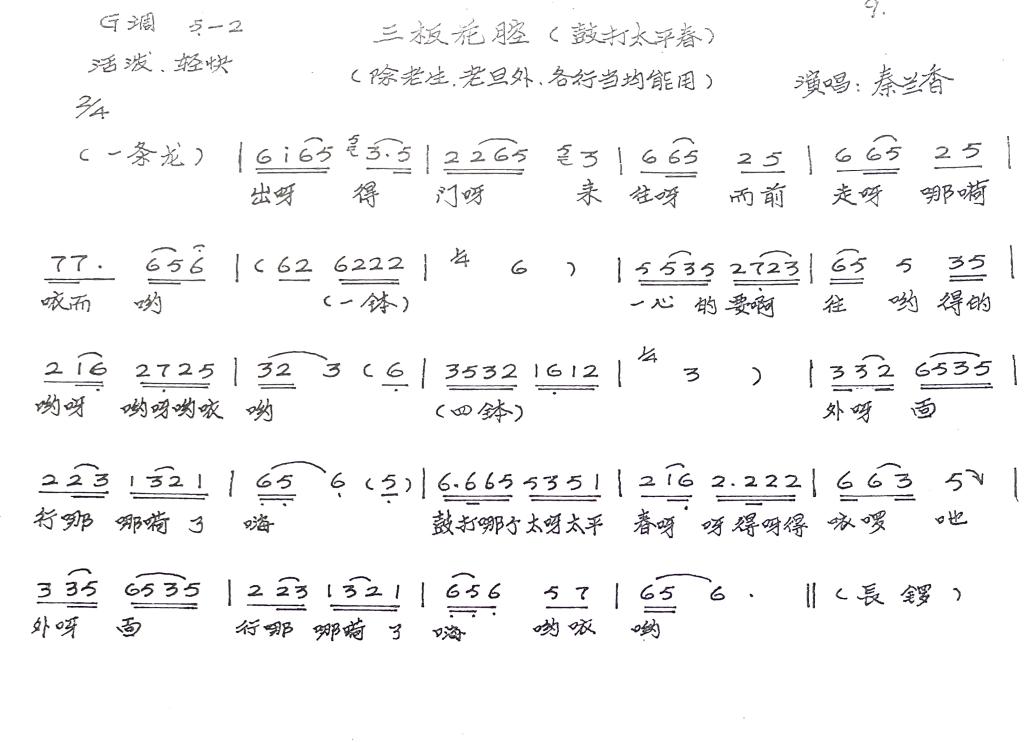 9.
G调 5—2 三板花腔（鼓打太平春）
活泼、轻快 （除老生、老旦外、各行当均能用） 演唱：秦兰香
2/4
（一条龙） | 6 i 6 5 3·5 | 2 2 6 5 3 | 6 6 5 2 5 | 6 6 5 2 5 |
出呀 得 门呀 来 往呀 而前 走呀 哪嗬
7 7 · 6 5 6 | （6 2 6 2 2 2 | 1/4 6 ） | 5 5 3 5 2 7 2 3 | 6 5 5 3 5 |
咳而 哟 （一钵） 一心 的 要啊 往 哟 得的
2 1 6 2 7 2 5 | 3 2 3 （6 | 3 5 3 2 1 6 1 2 | 1/4 3 ） | 3 3 2 6 5 3 5 |
哟呀 哟呀哟咳 哟 （四钵） 外呀 面
2 2 3 1 3 2 1 | 6 5 6 （5） | 6·6 6 5 5 3 5 1 | 2 1 6 2·2 2 2 | 6 6 3 5 |
行哪 哪嗬 了 嗨 鼓打哪个太呀太平 春呀 呀得呀得 咳啰 吔
3 3 5 6 5 3 5 | 2 2 3 1 3 2 1 | 6 5 6 5 7 | 6 5 6 · ‖（長锣）
外呀 面 行哪 哪嗬 了 嗨 哟咳 哟